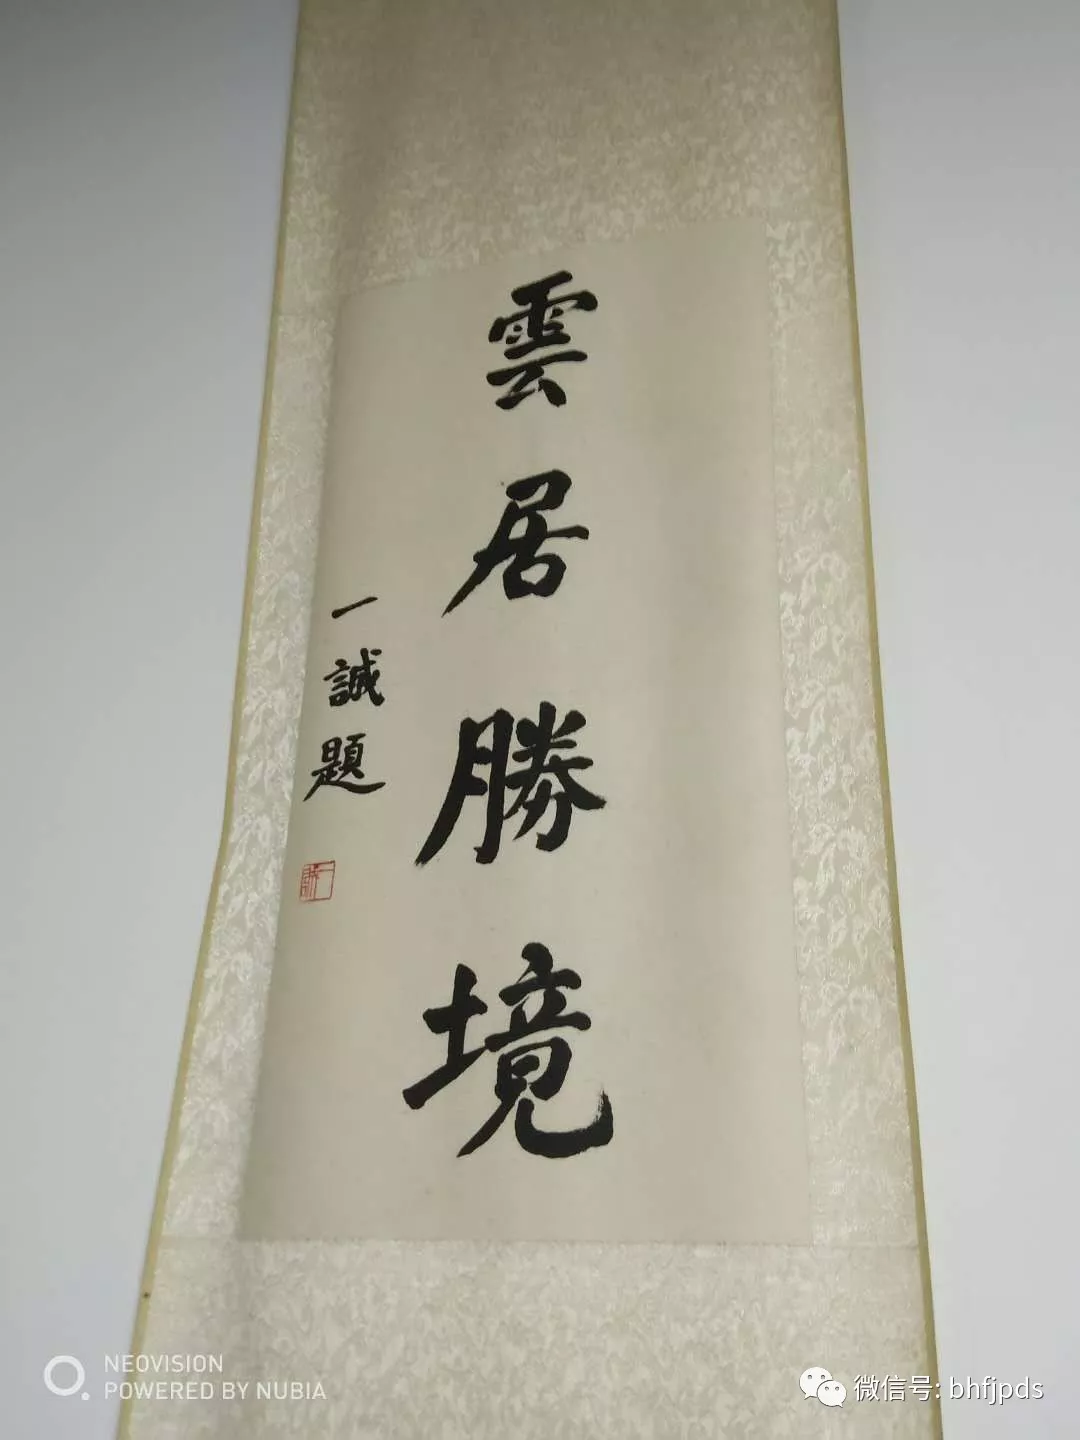 雲居勝境
一誠題
一誠
NEOVISION
POWERED BY NUBIA
微信号: bhfjpds